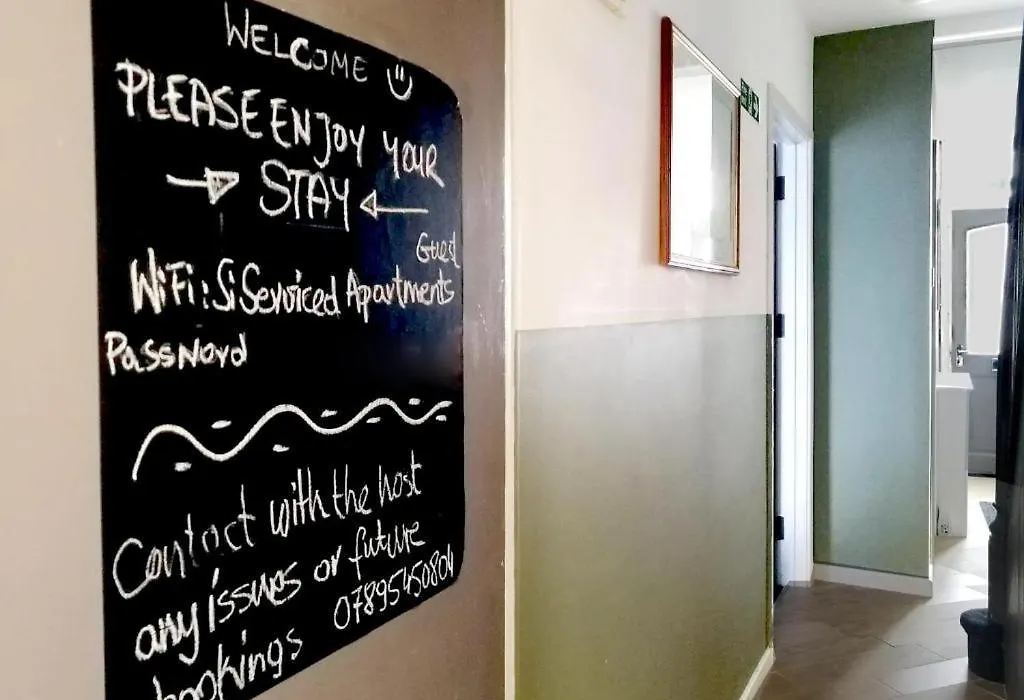 WELCOME
PLEASE ENJOY YOUR
STAY
Guest
WiFi: SiServiced Apartments
Password
Contact with the host
any issues or future
bookings 07895450804